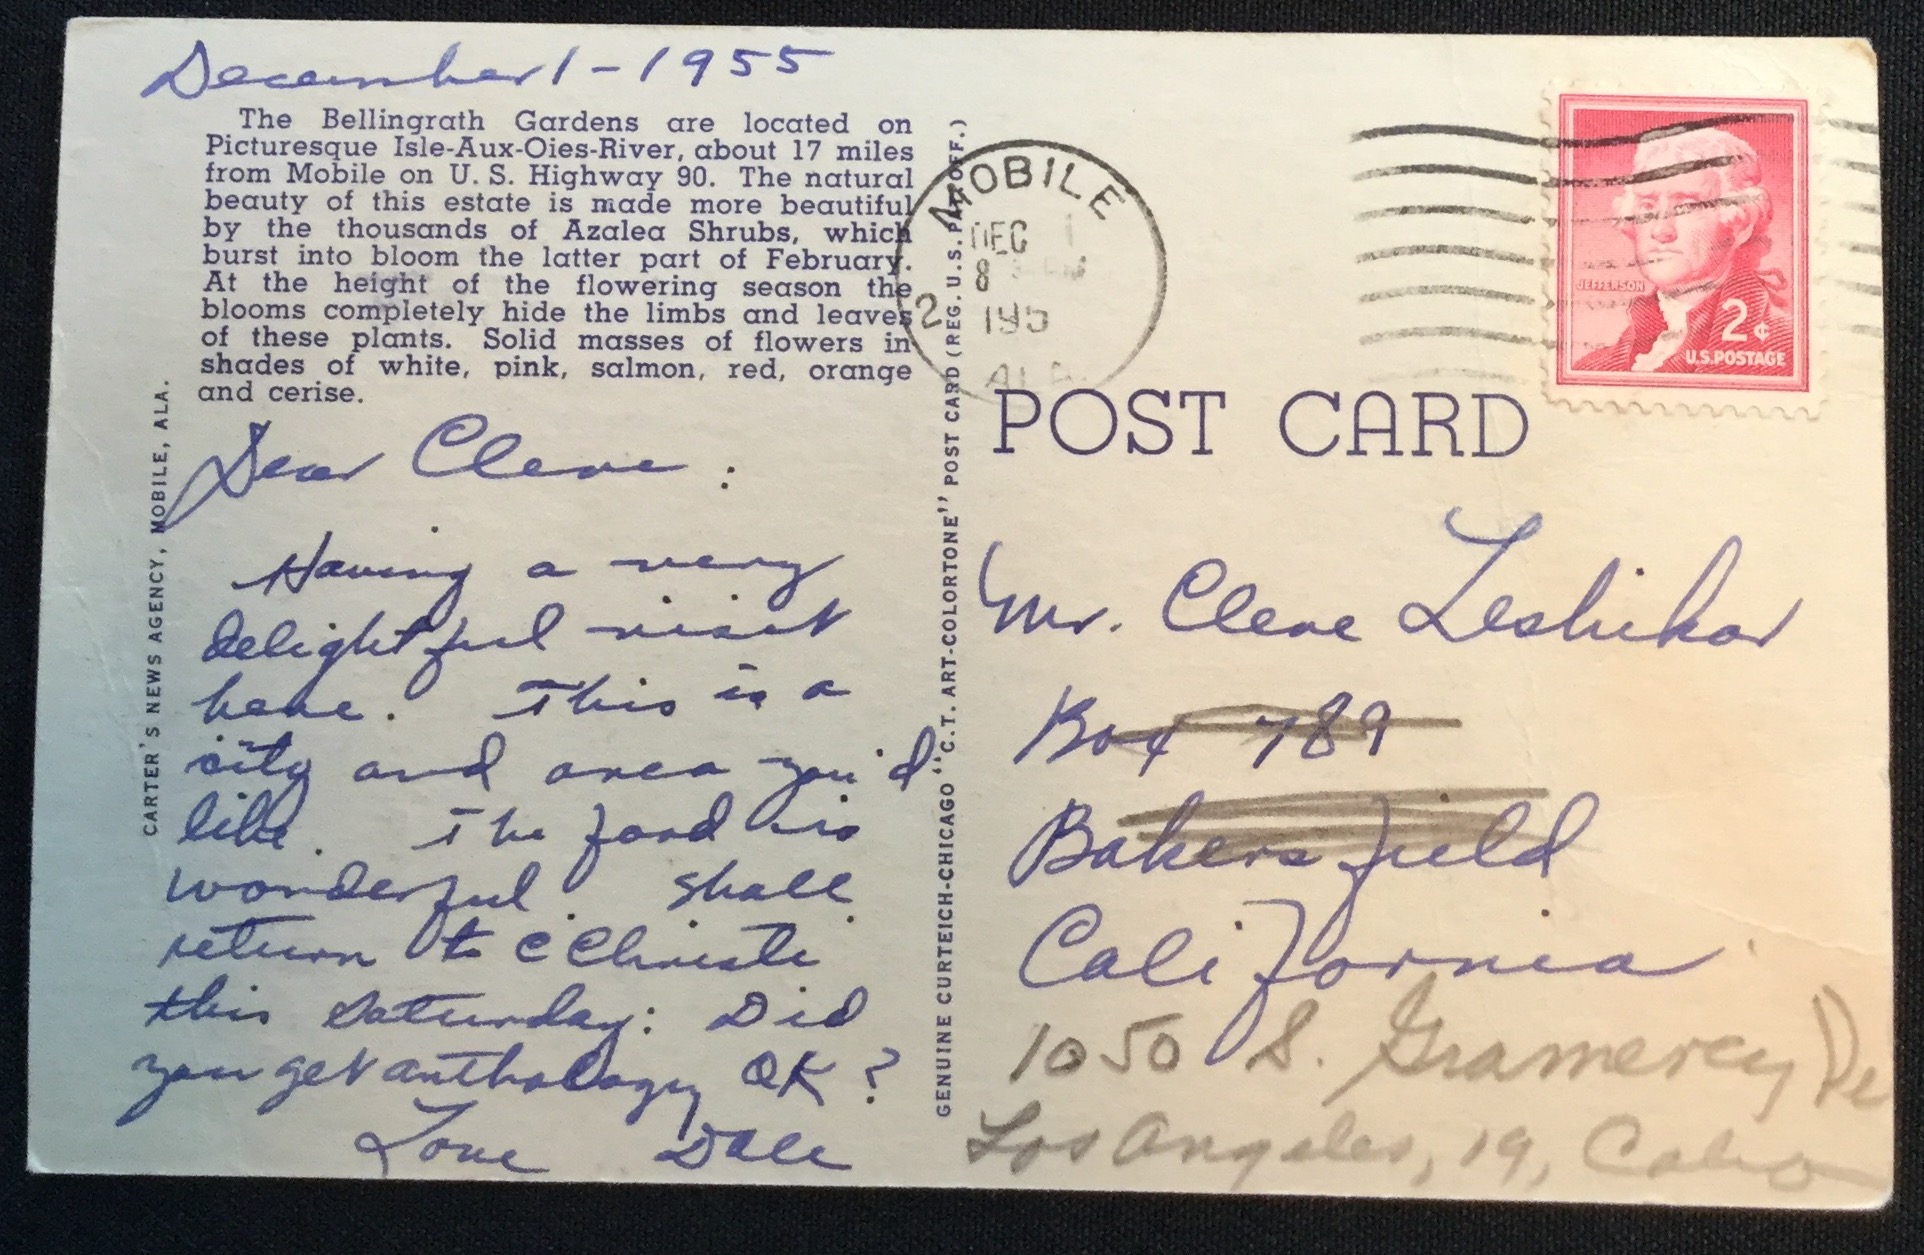 December 1 - 1955
The Bellingrath Gardens are located on
Picturesque Isle-Aux-Oies-River, about 17 miles
from Mobile on U. S. Highway 90. The natural
beauty of this estate is made more beautiful
by the thousands of Azalea Shrubs, which
burst into bloom the latter part of February.
At the height of the flowering season the
blooms completely hide the limbs and leaves
of these plants. Solid masses of flowers in
shades of white, pink, salmon, red, orange
and cerise.
Dear Cleve :
Having a very
delightful visit
here. This is a
city and area you'd
like. The food is
wonderful. Shall
return to C Christi
this Saturday: Did
you get anthology OK?
Love Dale
CARTER'S NEWS AGENCY, MOBILE, ALA.
GENUINE CURTEICH-CHICAGO "C.T. ART-COLORTONE" POST CARD (REG. U.S. PAT. OFF.)
MOBILE
DEC 1
8 PM
2 195
ALA
JEFFERSON
2¢
U.S. POSTAGE
POST CARD
Mr. Cleve Leshikar
Box 789
Bakersfield
California
1050 S. Gramercy
Los Angeles, 19,